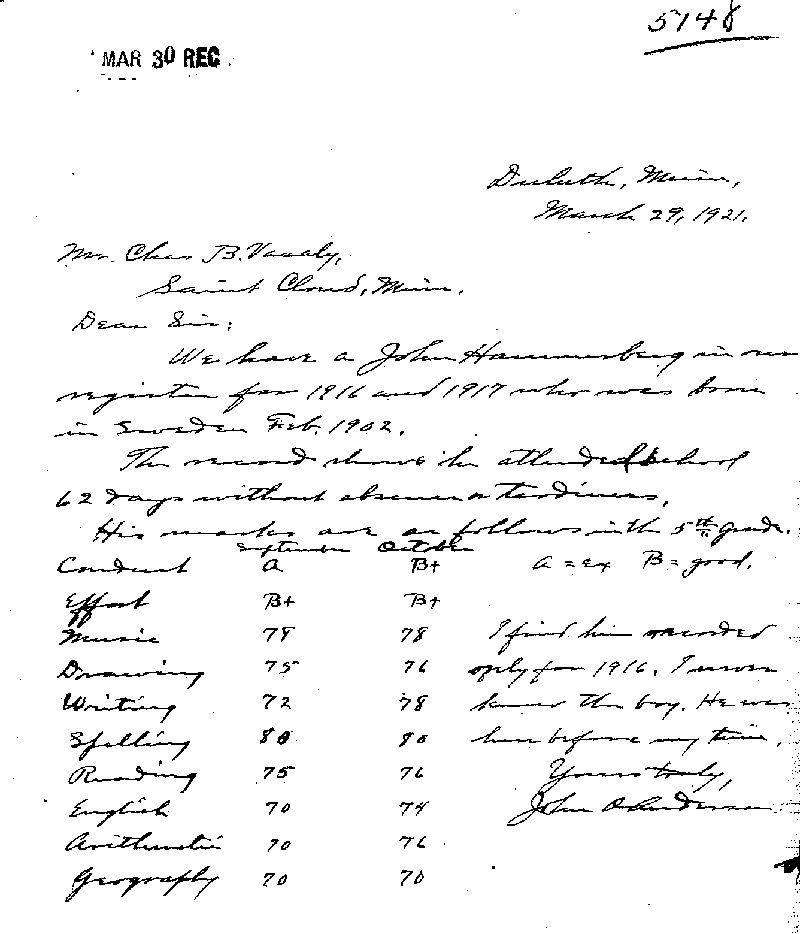 5148
MAR 30 REC
Duluth, Minn,
March 29, 1921.
Mr. Chas B. Vasaly,
Saint Cloud, Minn.
Dear Sir:
We have a John Hammerberg in our
register for 1916 and 1917 who was born
in Sweden Feb. 1902.
The record shows he attended school
62 days without absence or tardiness.
His marks are as follows in the 5th grade.
September October
Conduct A B+ A = ex B = good.
Effort B+ B+
Music 78 78 I find him recorded
Drawing 75 76 only for 1916. I never
Writing 72 78 knew the boy. He was
Spelling 80 80 here before my time.
Reading 75 76 Yours truly,
English 70 74 John A Anderson
Arithmetic 70 76
Geography 70 70